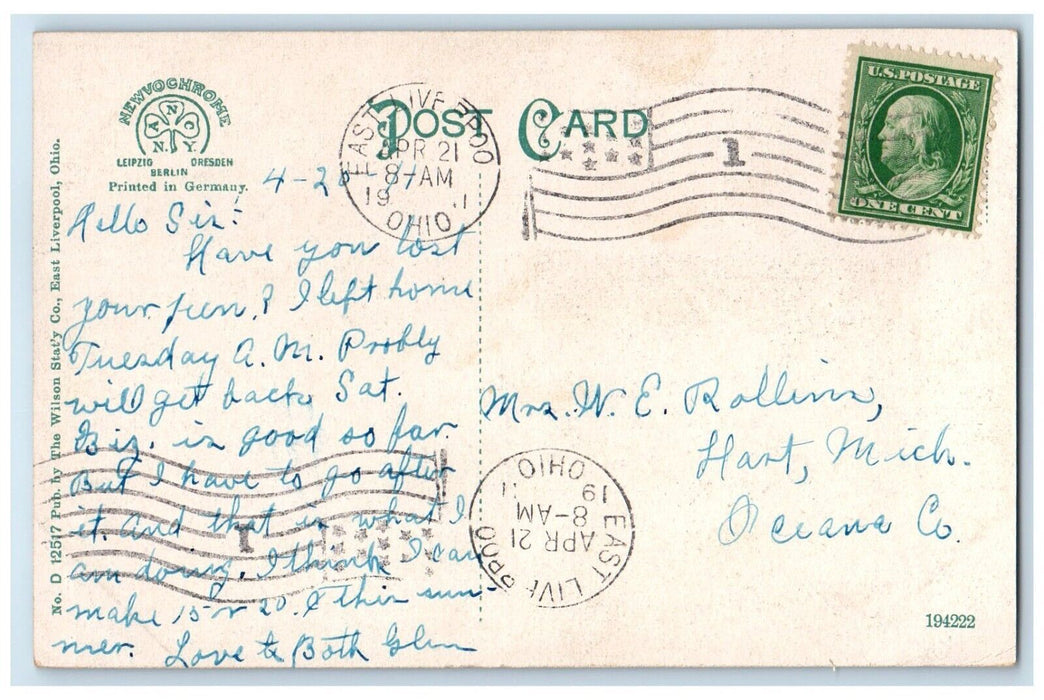 NEWVOCHROME
ANCO
N.Y.
LEIPZIG DRESDEN
BERLIN
Printed in Germany.
POST CARD
EAST LIVERPOOL
APR 21
8-AM
19 11
OHIO
1
U.S. POSTAGE
ONE CENT
4-20
Hello Sis:
Have you lost
your pen? I left home
Tuesday A.M. Probly
will get back Sat.
Biz. is good so far.
But I have to go after
it. and that is what I
am doing. I think I can
make 15 or 20. this sum-
mer. Love to Both Glen
Mrs. W. E. Rollins,
Hart, Mich.
Oceana Co.
EAST LIVERPOOL
APR 21
8-AM
19 11
OHIO
1
194222
No. D 12517 Pub. by The Wilson Stat'y Co., East Liverpool, Ohio.